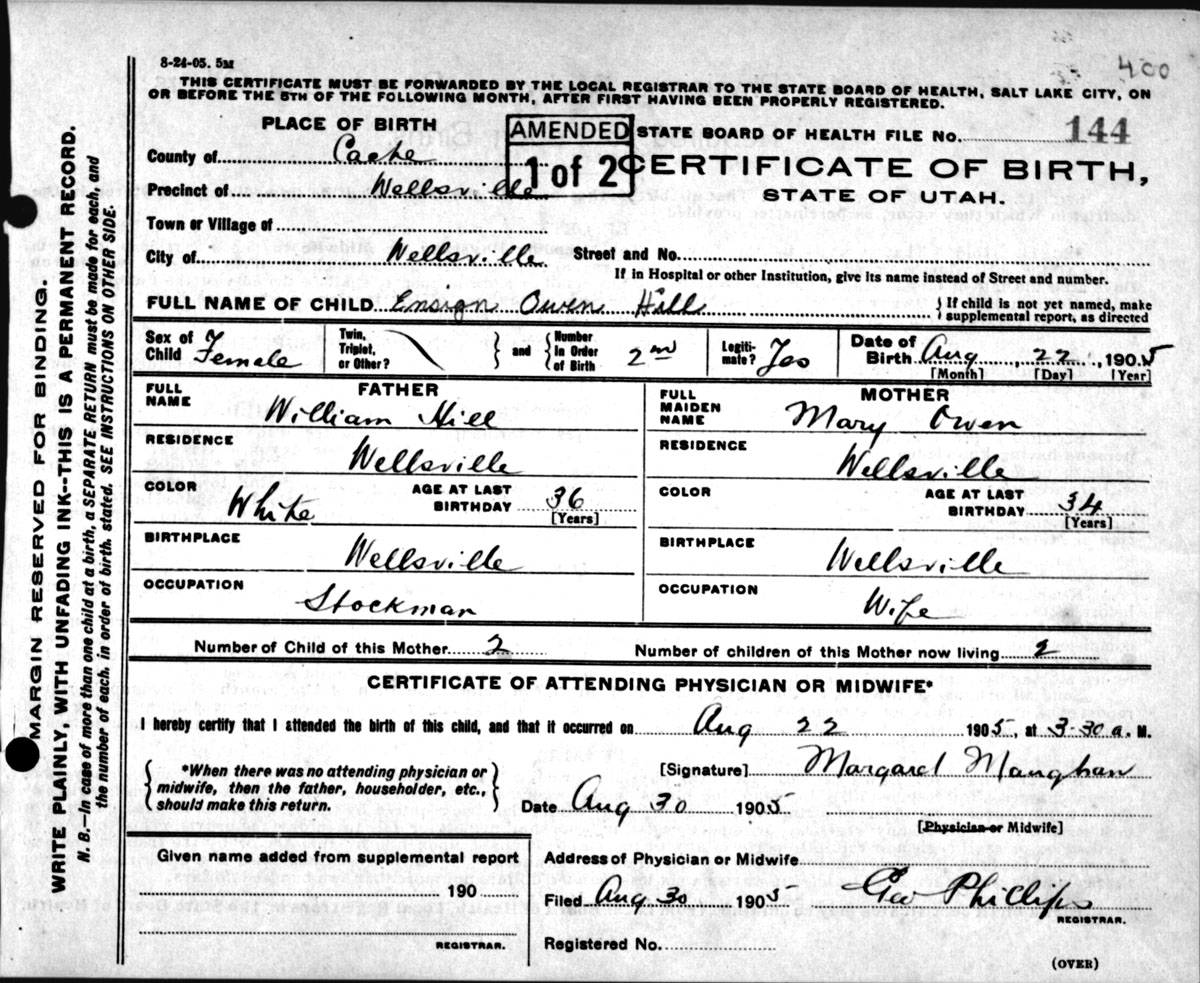 400
8-24-05. 5M
THIS CERTIFICATE MUST BE FORWARDED BY THE LOCAL REGISTRAR TO THE STATE BOARD OF HEALTH, SALT LAKE CITY, ON
OR BEFORE THE 5TH OF THE FOLLOWING MONTH, AFTER FIRST HAVING BEEN PROPERLY REGISTERED.
PLACE OF BIRTH
AMENDED
1 of 2
STATE BOARD OF HEALTH FILE No. 144
CERTIFICATE OF BIRTH,
STATE OF UTAH.
County of Cache
Precinct of Wellsville
Town or Village of
City of Wellsville Street and No.
If in Hospital or other Institution, give its name instead of Street and number.
FULL NAME OF CHILD Ensign Owen Hill { If child is not yet named, make supplemental report, as directed
Sex of Child Female Twin, Triplet, or Other? } and { Number in Order of Birth 2nd Legitimate? Yes Date of Birth Aug 22, 1905
[Month] [Day] [Year]
FATHER
FULL NAME William Hill
RESIDENCE
Wellsville
COLOR White AGE AT LAST BIRTHDAY 36
[Years]
BIRTHPLACE
Wellsville
OCCUPATION
Stockman
MOTHER
FULL MAIDEN NAME Mary Owen
RESIDENCE
Wellsville
COLOR AGE AT LAST BIRTHDAY 34
[Years]
BIRTHPLACE
Wellsville
OCCUPATION
Wife
Number of Child of this Mother 2 Number of children of this Mother now living 2
CERTIFICATE OF ATTENDING PHYSICIAN OR MIDWIFE*
I hereby certify that I attended the birth of this child, and that it occurred on Aug 22 1905, at 3-30 a. M.
{ *When there was no attending physician or
midwife, then the father, householder, etc.,
should make this return. }
[Signature] Margaret Maughan
Date Aug 30 1905
[Physician or Midwife]
Given name added from supplemental report
190
REGISTRAR.
Address of Physician or Midwife
Filed Aug 30 1905 Geo Phillips
REGISTRAR.
Registered No.
(OVER)
MARGIN RESERVED FOR BINDING.
WRITE PLAINLY, WITH UNFADING INK--THIS IS A PERMANENT RECORD.
N. B.—In case of more than one child at a birth, a SEPARATE RETURN must be made for each, and
the number of each, in order of birth, stated. SEE INSTRUCTIONS ON OTHER SIDE.